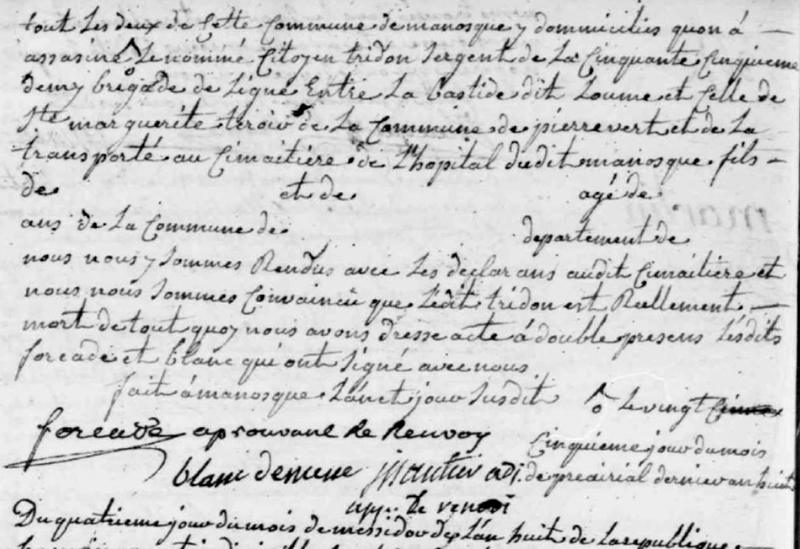 tout Les deux de Cette Commune de manosque y dommiciliés quon á
assasiné ô Le nommé Citoyen tridon Sergent de La Cinquante Cinquieme
demy brigade de Ligne Entre La bastide dit Loume et Celle de
Ste marguerite teroir de La Commune de pierrevert et de La
transporté au Cimaitiére de L'hopital dudit manosque fils
de et de agé de
ans de La Commune de departement de
nous nous y Sommes Rendus avec Les declarans audit Cimaitiere et
nous nous Sommes Convaincu que Ledit tridon est Reellement
mort de tout quoy nous avons dresse acte á double presens Lesdits
forcade et blanc qui ont Signé avec nous
fait á manosque Lan et jour Susdit ô Le vingt
forcade aprouvant Le Renvoy Cinquieme jour du mois
blanc adj. de preairial dernier an huit
app. Le renvoi
Du quatrieme jour du mois de messidor de Lan huit de La republique